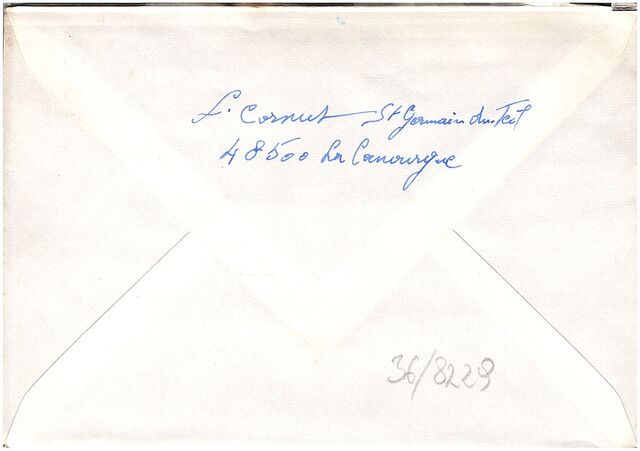 f. Cornut St Germain du Teil
48500 La Canourgue
36/8229